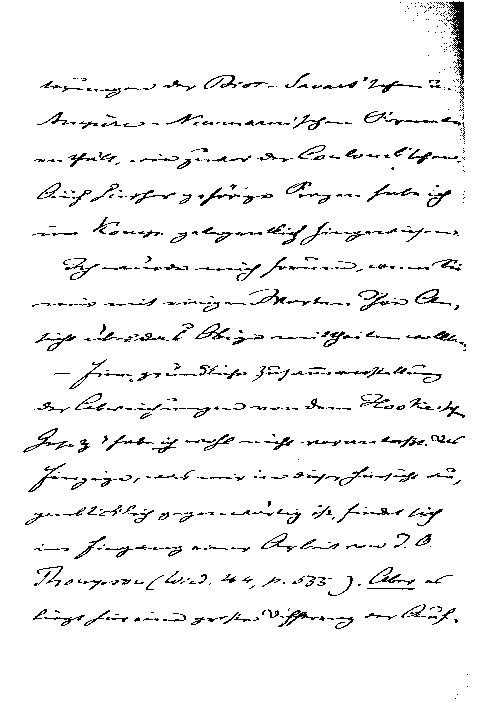 terungen der Biot-Savart'schen u.
Ampère-Neumann'schen Formeln
enthält, wie zuvor der Coulomb'schen.
Auch hierher gehörige Fragen habe ich
im Kompe gelegentlich hingewiesen.
Ich würde mich freuen, wenn Sie
mir mit einigen Worten Ihre An-
sicht über das Obige mittheilen wollten.
— Eine gründliche Zusammenstellung
der Abweichungen von dem Hooke'schen
Gesetz habe ich wohl nicht veranlaßt. Das
Einzige, was mir in dieser Hinsicht au-
genblicklich gegenwärtig ist, findet sich
im Eingang einer Arbeit von J. O.
Thompson (Wied. 44, p. 555). Aber es
liegt hier eine große Differenz der Auf-